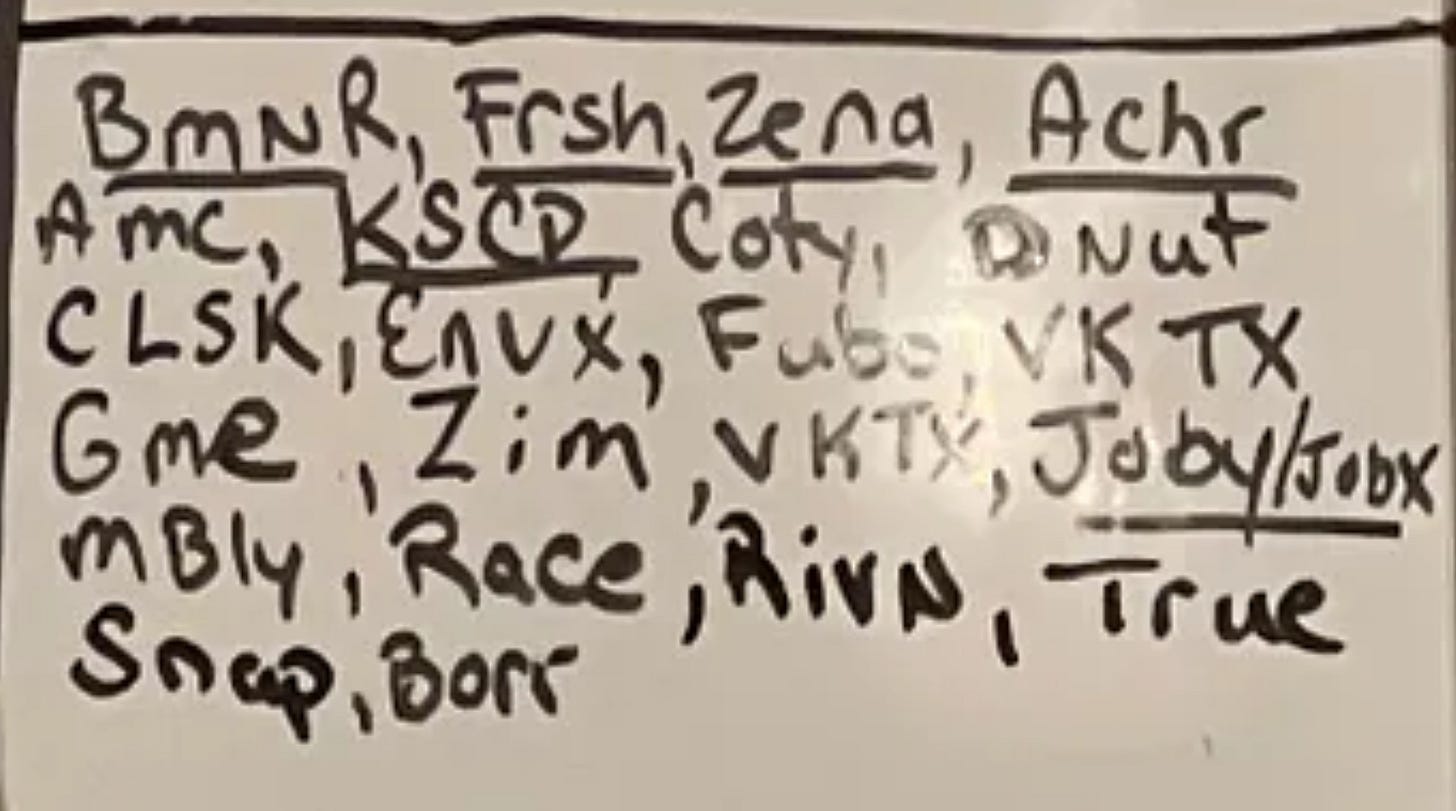 BmNR, Frsh, Zena, Achr
Amc, KSCD Coty, DNut
CLSK, EnVX, Fubo, VKTX
Gme, Zim, VKTX, Joby/Jobx
mBly, Race, RivN, True
Snap, Borr